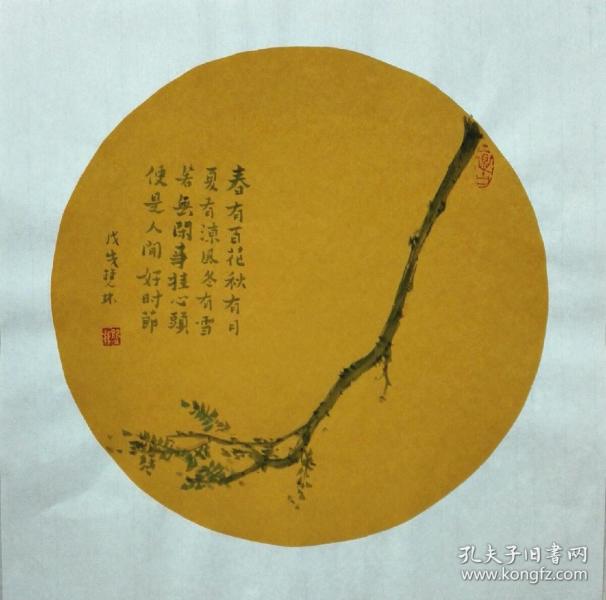 春有百花秋有月
夏有涼風冬有雪
若無閑事挂心頭
便是人間好时節
戊戌
孔夫子旧書网
www.kongfz.com